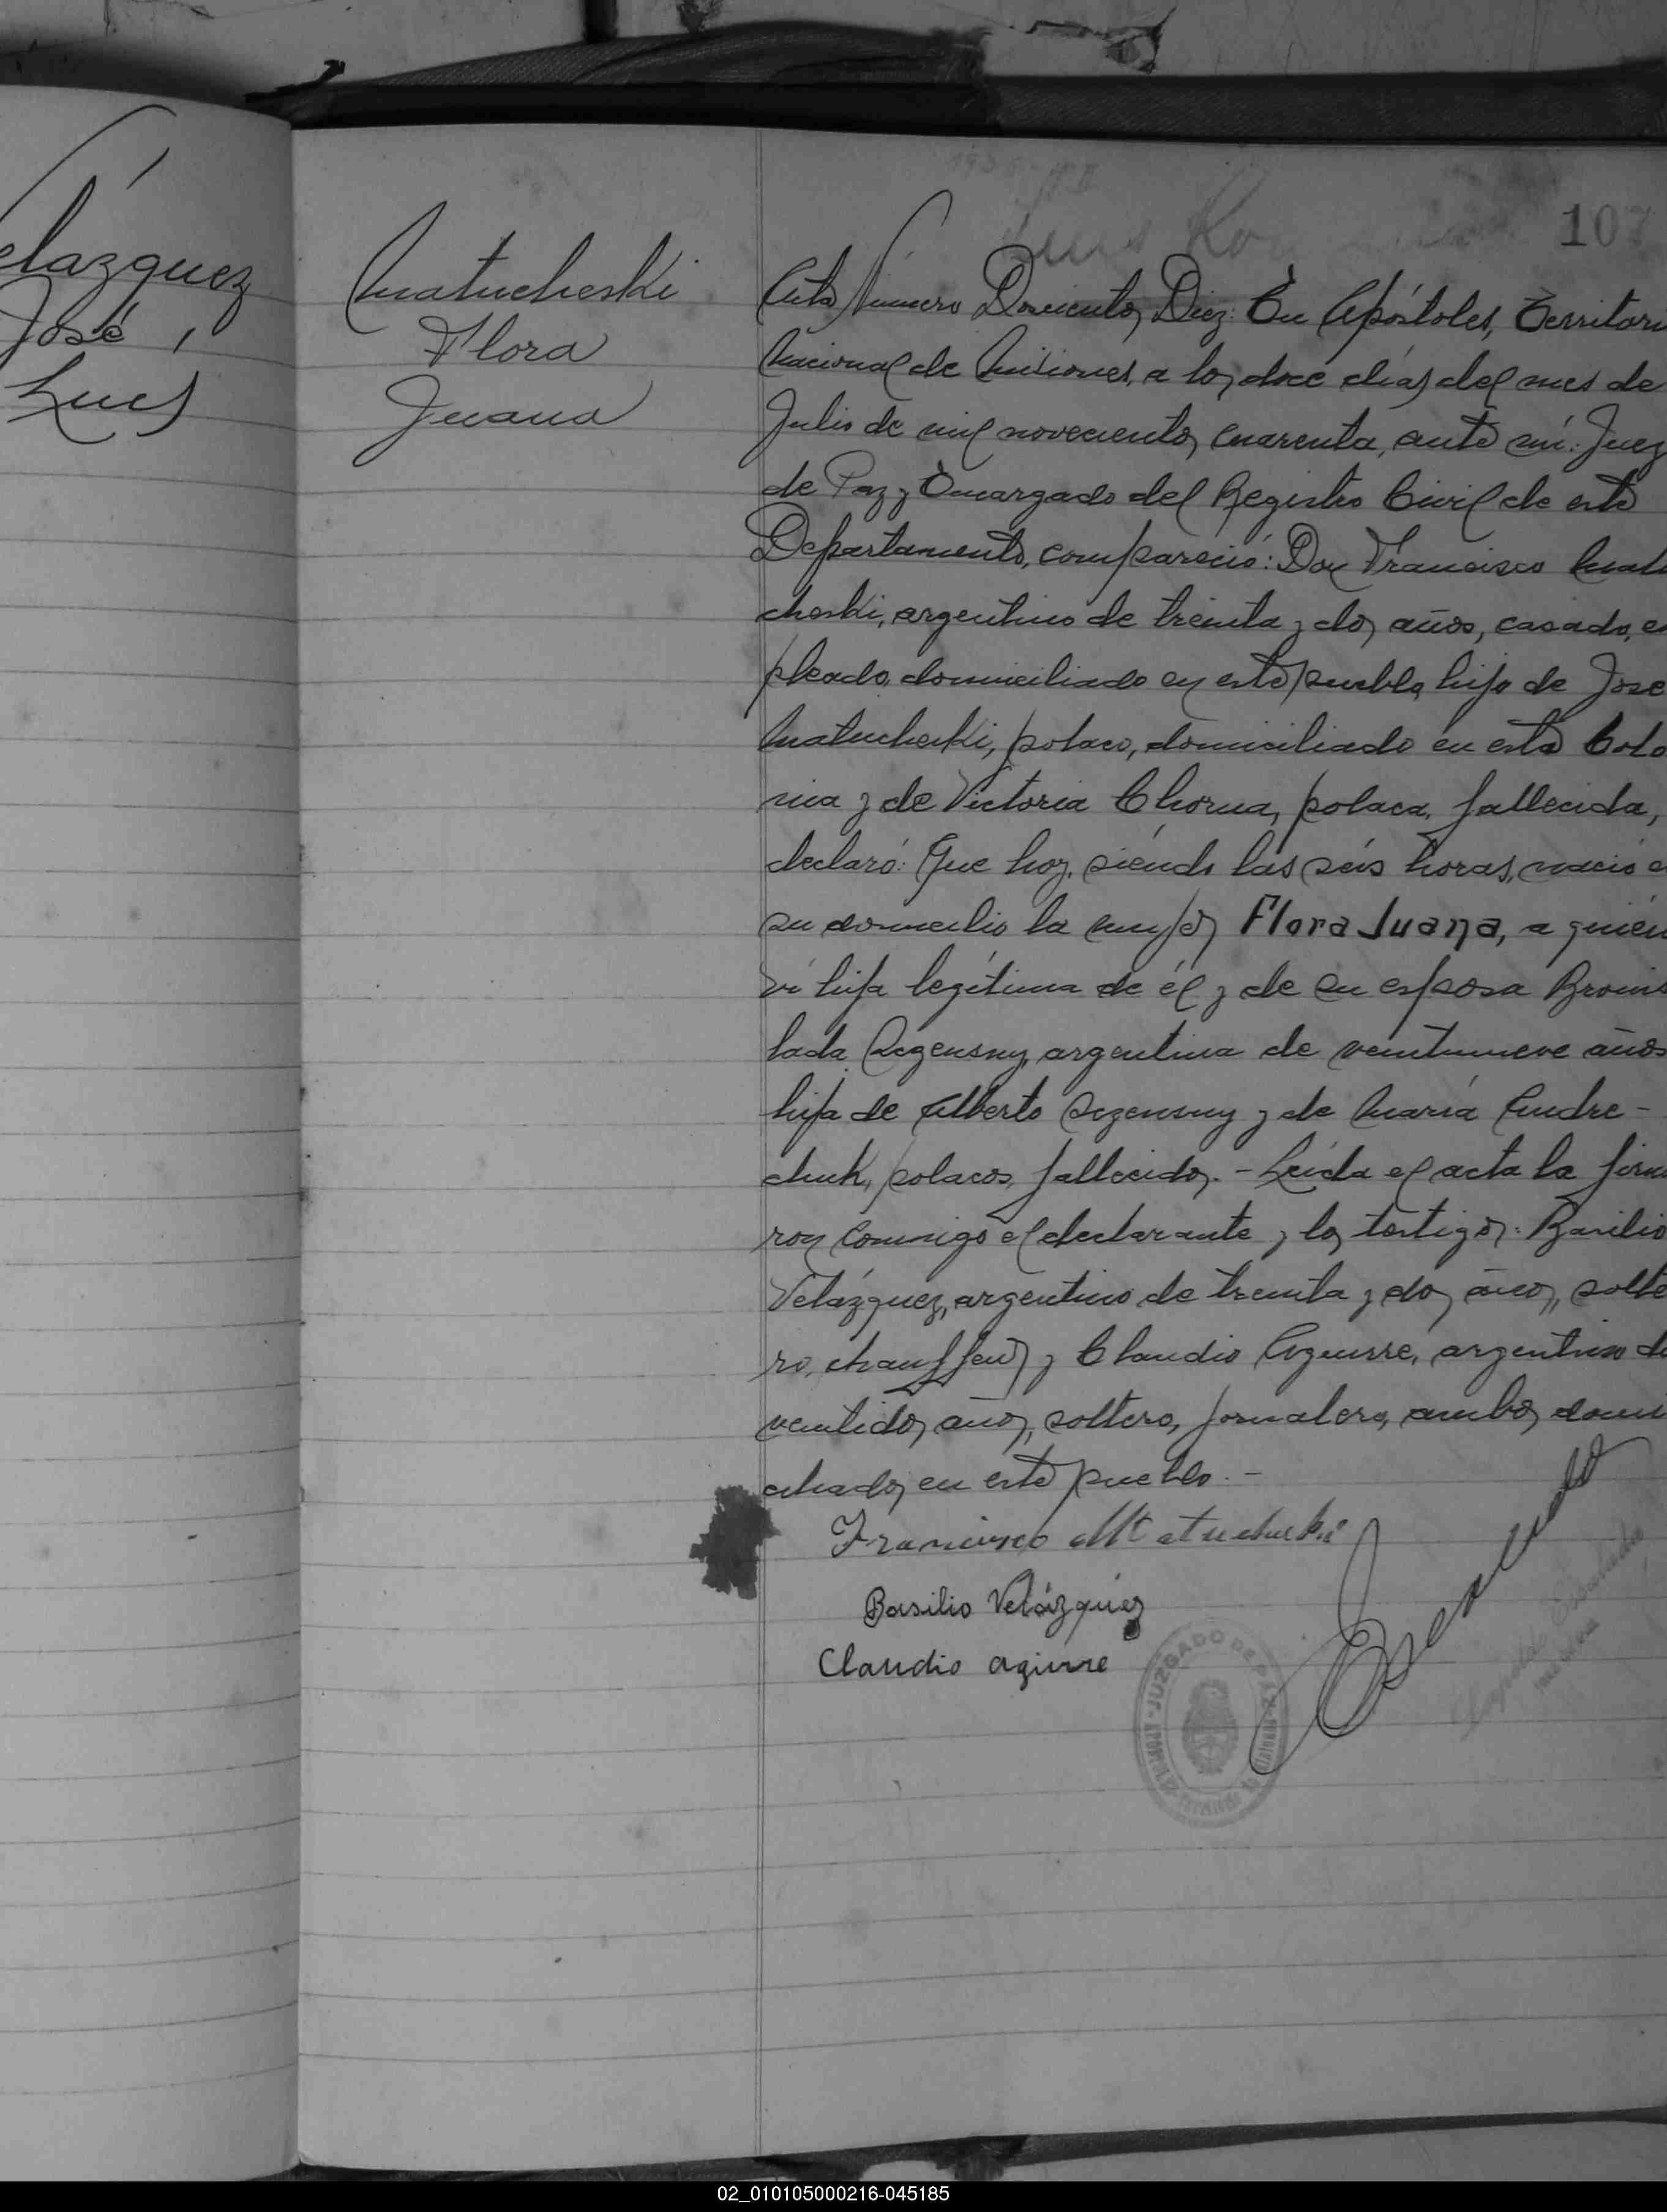 107
elázquez
José,
Luis
Matucheski
Flora
Juana
Acta Número Doscientos Diez: En Apóstoles, Territori
Nacional de Misiones, a los doce días del mes de
Julio de mil novecientos cuarenta, ante mí: Juez
de Paz y Encargado del Registro Civil de este
Departamento, compareció: Don Francisco Matu
cheski, argentino de treinta y dos años, casado, em
pleado, domiciliado en este pueblo, hijo de José
Matucheski, polaco, domiciliado en esta Colo
nia y de Victoria Chorna, polaca, fallecida,
declaró: Que hoy, siéndo las séis horas, nació e
su domicilio la mujer Flora Juana, a quién
ví hija legítima de él y de su esposa Bronis
lada argentina de veintinueve años
hija de Alberto y de María Andre-
chuk, polacos, fallecidos.- Leída el acta la firma
ron conmigo el declarante y los testigos: Basilio
Velázquez, argentino de treinta y dos años, solte
ro, chauffeur y Claudio Aguirre, argentino de
ventidos años, soltero, jornalero, ambos domi
ciliados en este pueblo.-
Francisco Matucheski
Basilio Velázquez
Claudio aguirre
JUZGADO DE PAZ
02_010105000216-045185